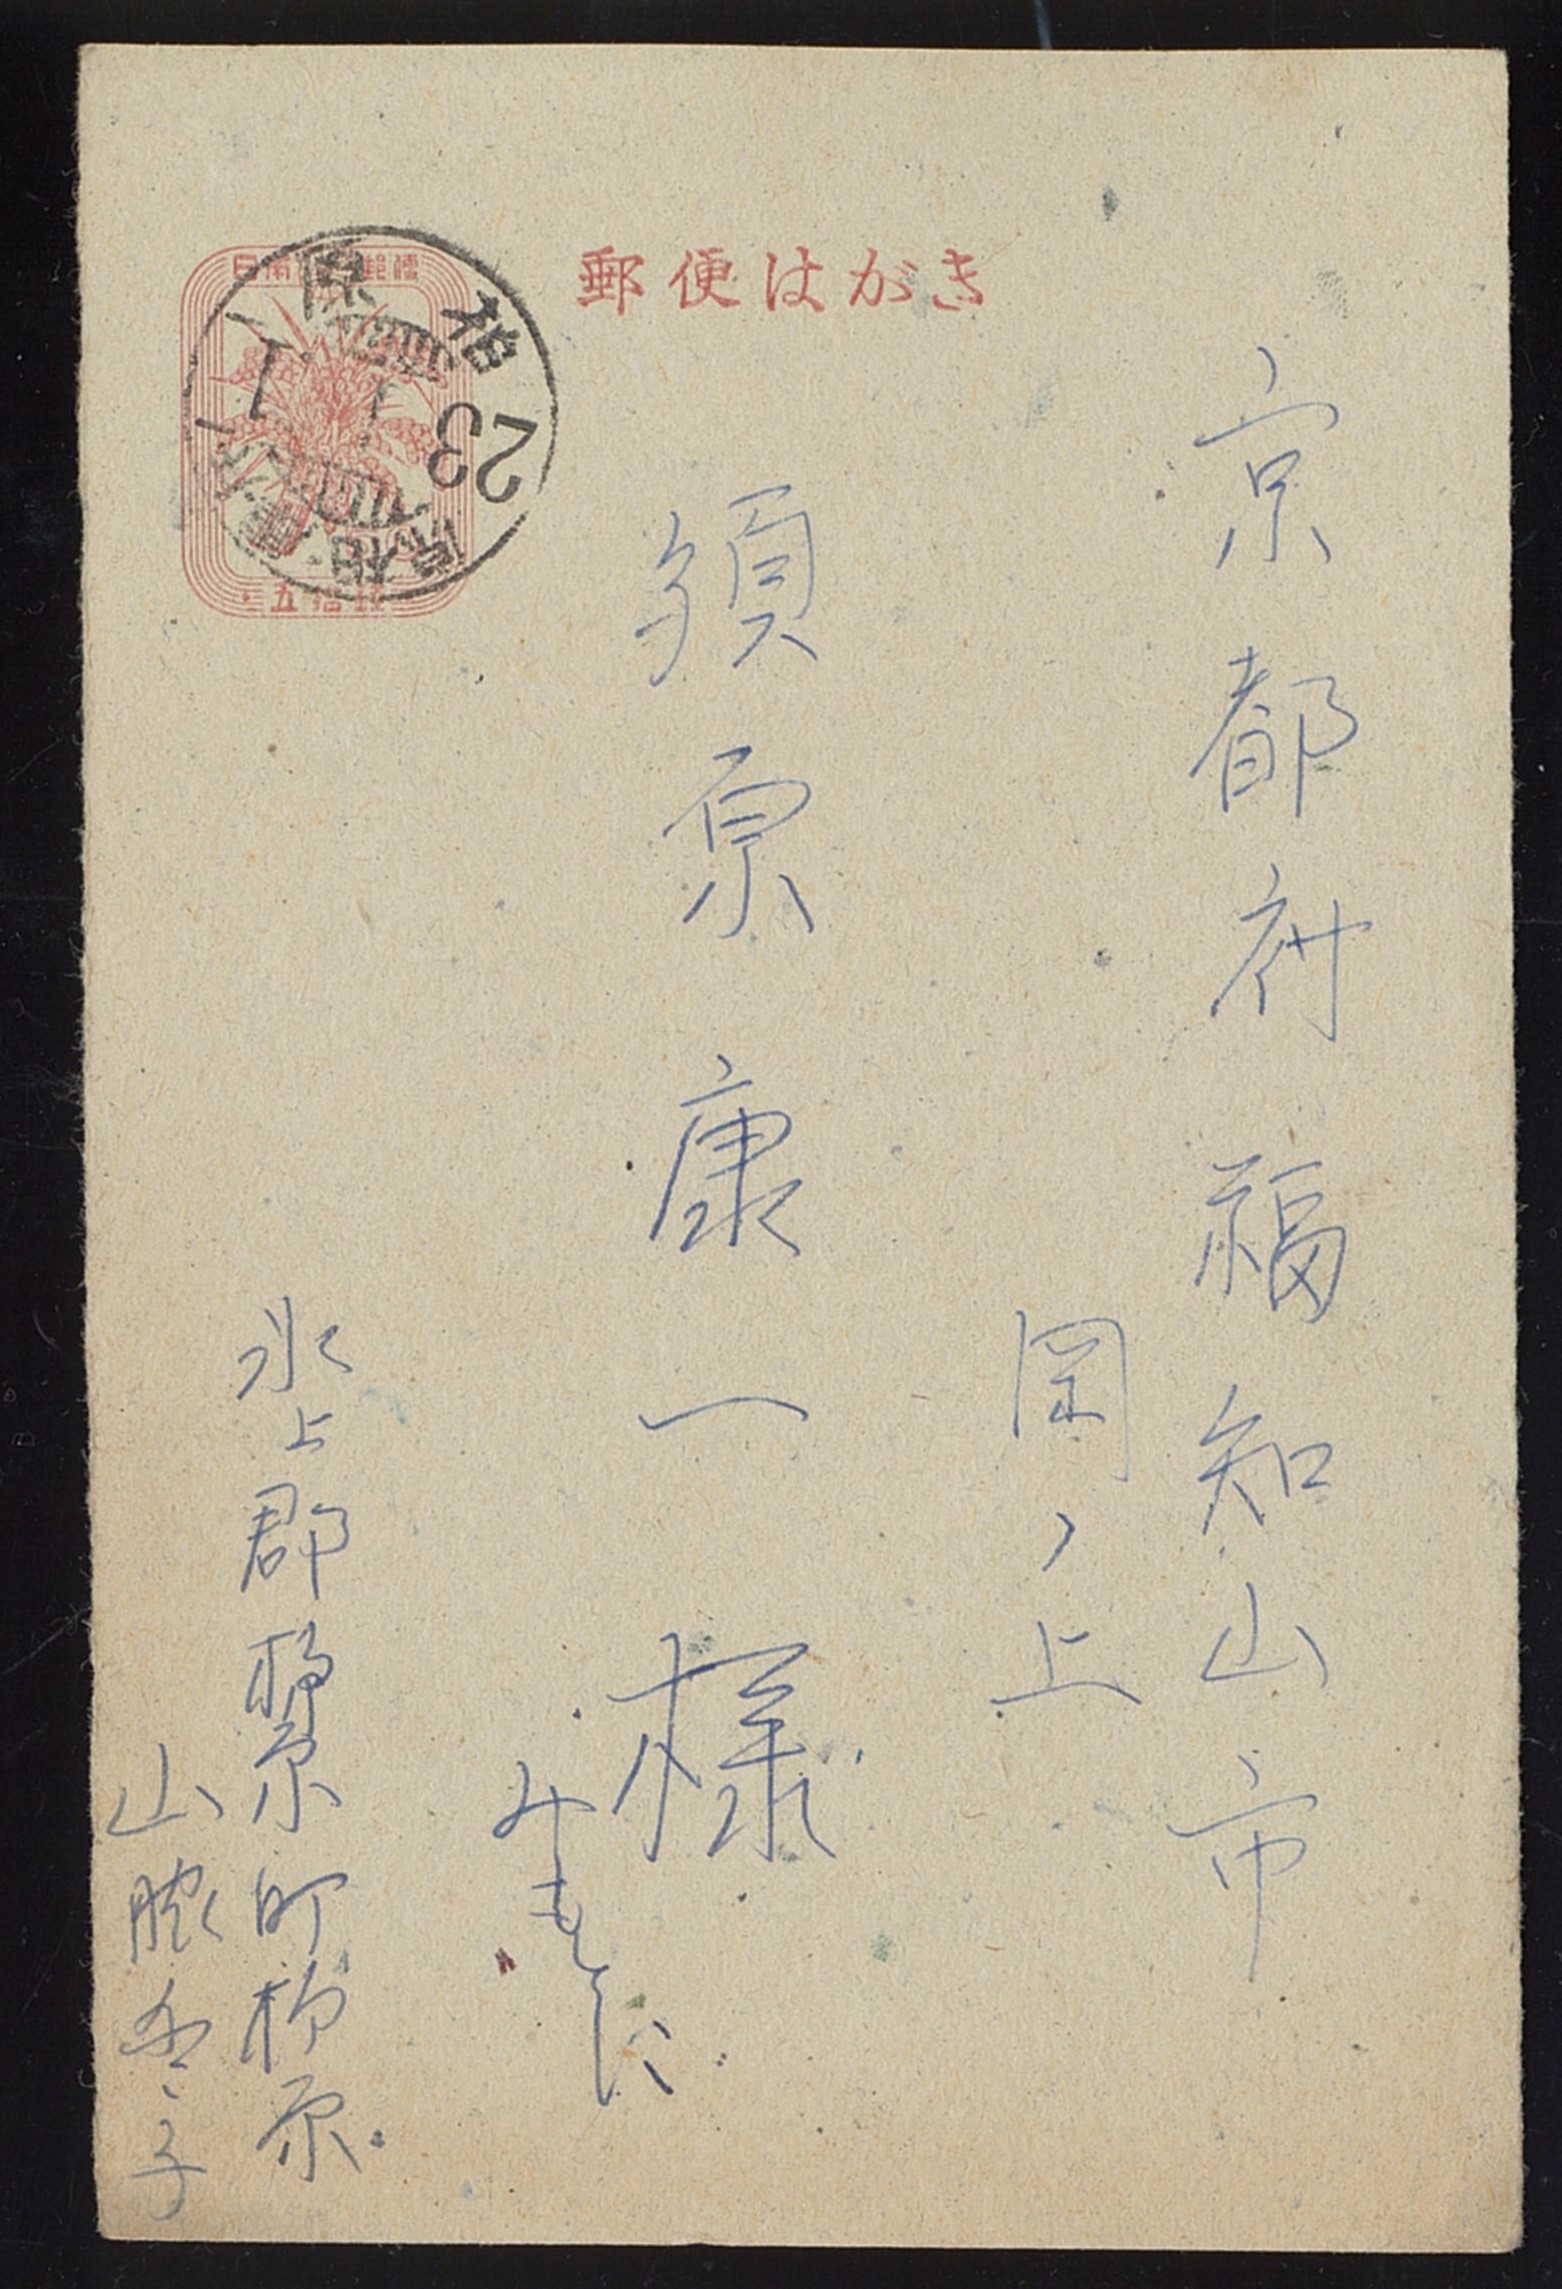 郵便はがき
日本郵便
五拾銭
柏原
23
1
京都府福知山市
岡ノ上
須原康一様
みもとに
氷上郡柏原町柏原
山脇香子